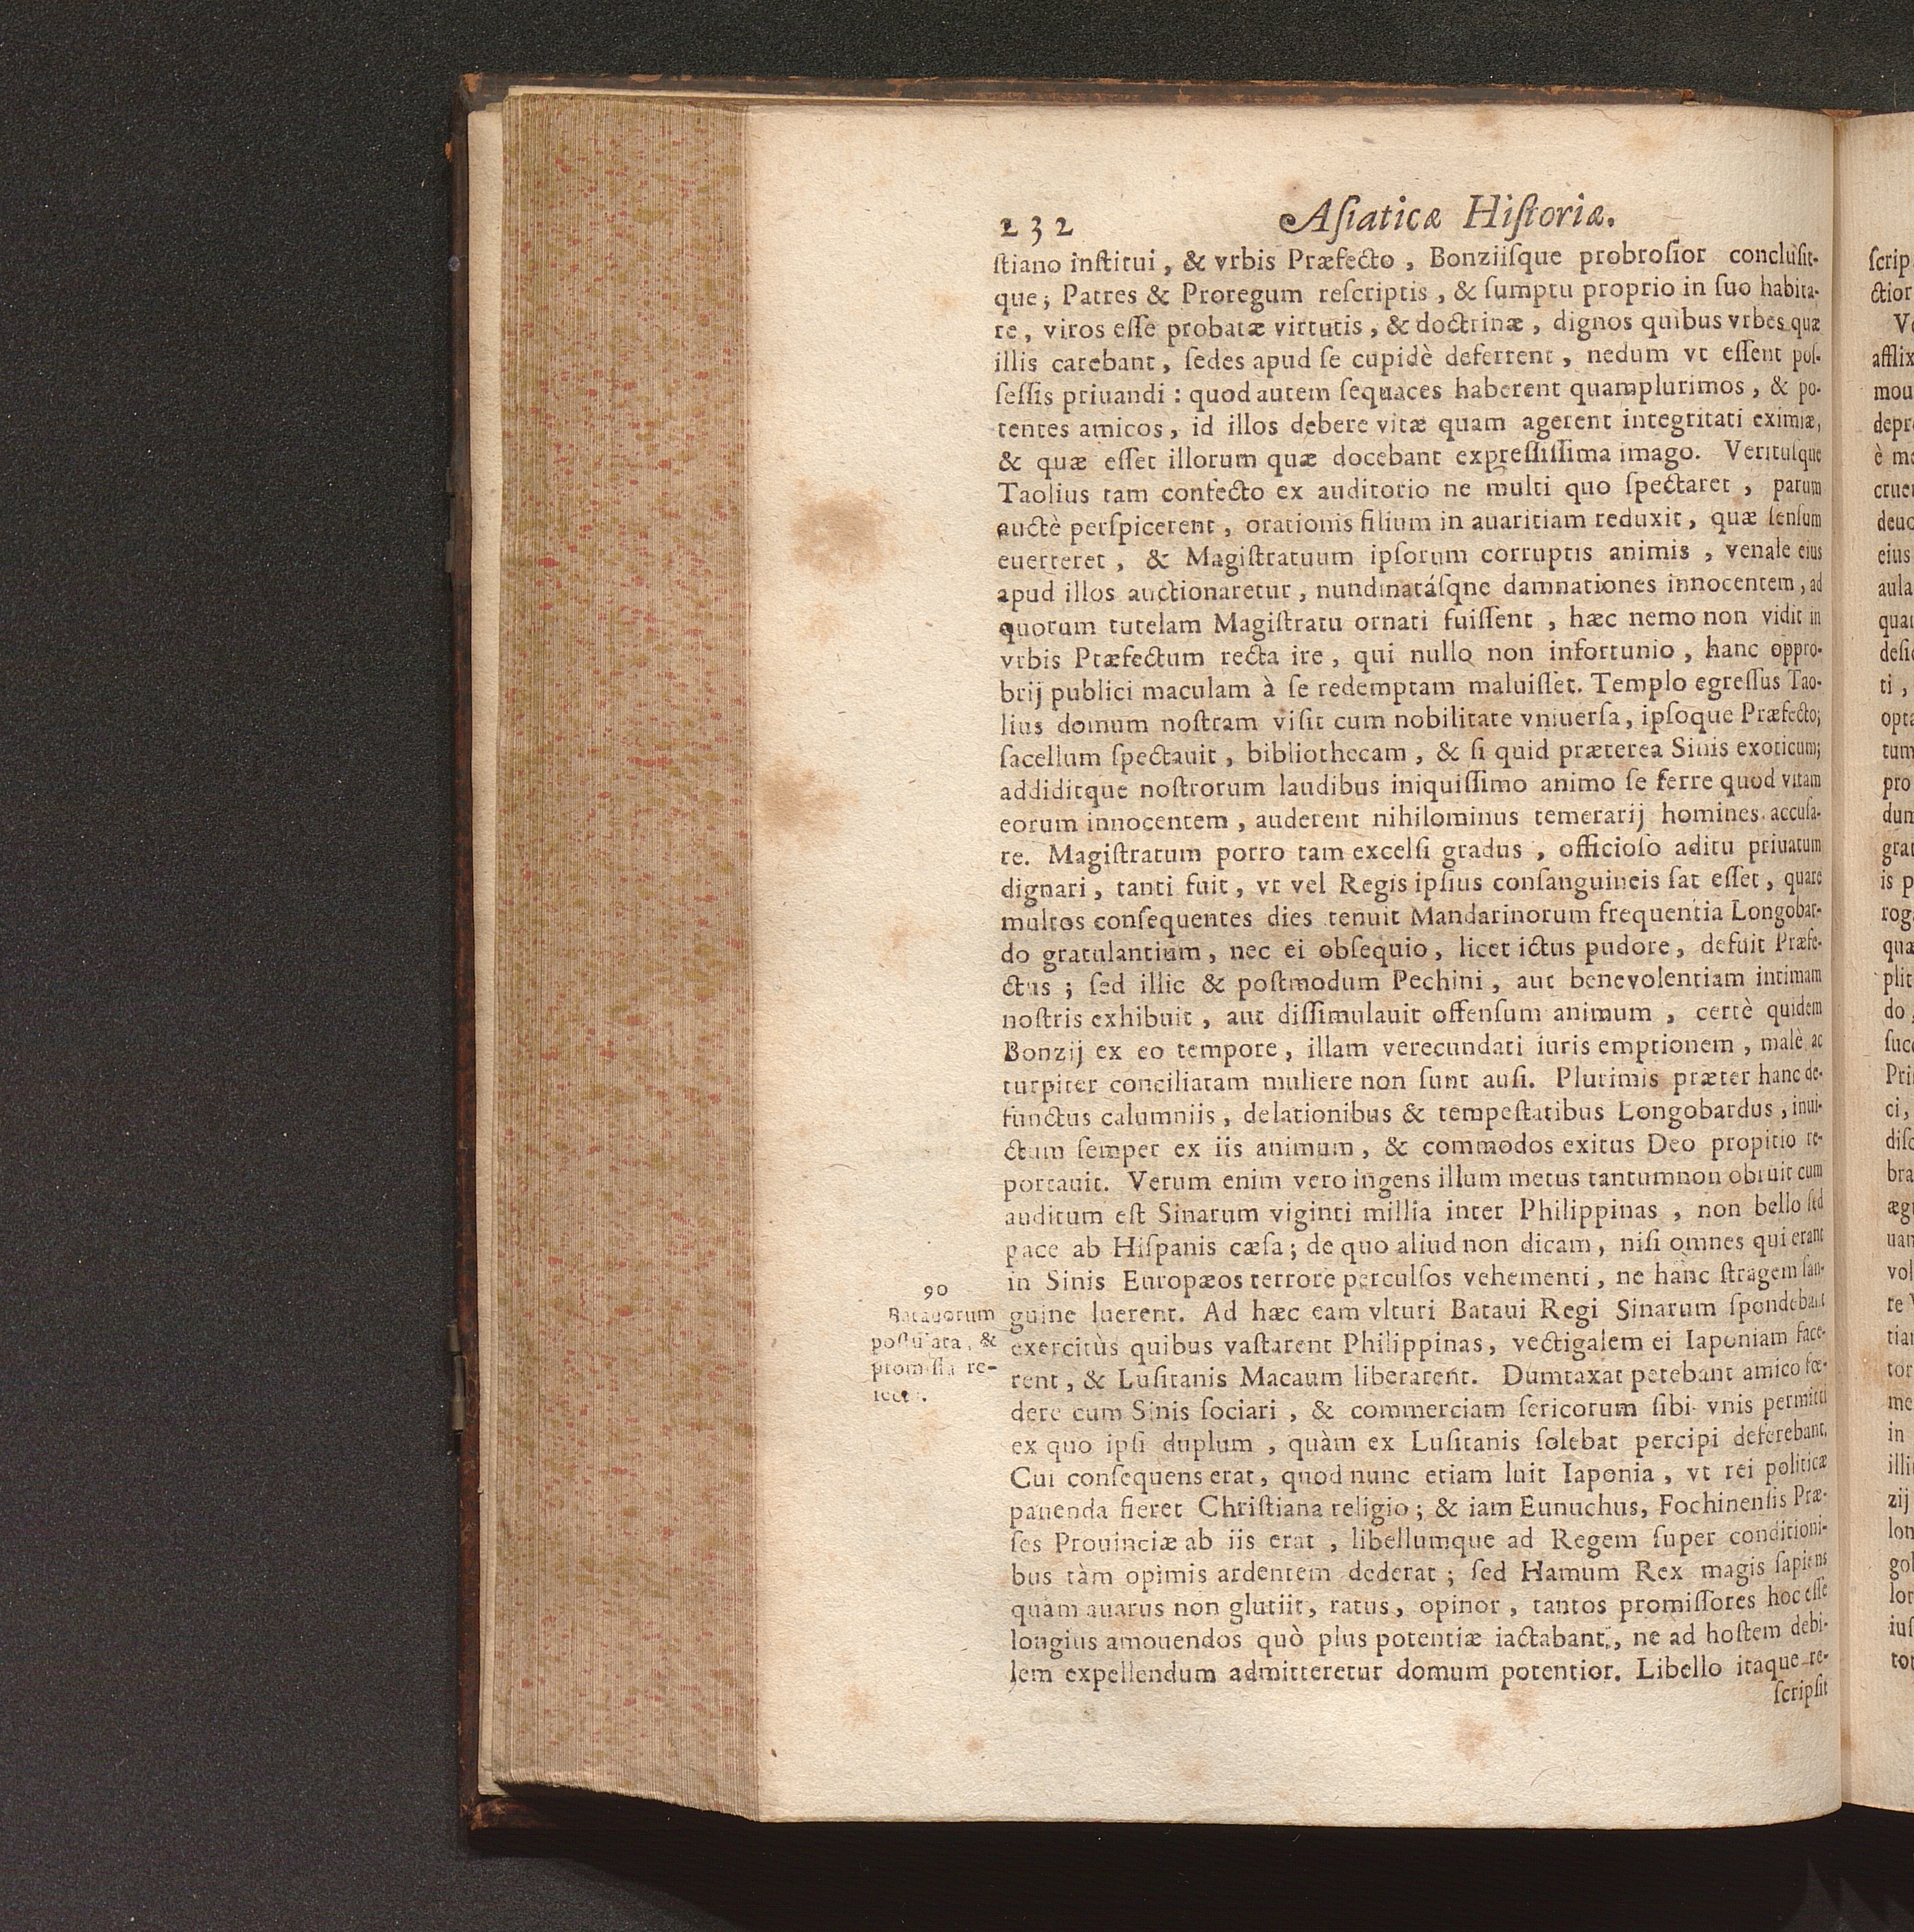 232
Aſiaticæ Hiſtoriæ.
ſtiano inſtitui, & vrbis Præfecto, Bonziiſque probroſior concluſit-
que; Patres & Proregum reſcriptis, & ſumptu proprio in ſuo habita-
re, viros eſſe probatæ virtutis, & doctrinæ, dignos quibus vrbes quæ
illis carebant, ſedes apud ſe cupidè deferrent, nedum vt eſſent poſ-
ſeſſis priuandi: quod autem ſequaces haberent quamplurimos, & po-
tentes amicos, id illos debere vitæ quam agerent integritati eximiæ,
& quæ eſſet illorum quæ docebant expreſſiſſima imago. Verituſque
Taolius tam confecto ex auditorio ne multi quo ſpectaret, parum
auctè perſpicerent, orationis filium in auaritiam reduxit, quæ ſenſum
euerteret, & Magiſtratuum ipſorum corruptis animis, venale eius
apud illos auctionaretur, nundinatáſqne damnationes innocentem, ad
quorum tutelam Magiſtratu ornati fuiſſent, hæc nemo non vidit in
vrbis Præfectum recta ire, qui nullo non infortunio, hanc oppro-
brij publici maculam à ſe redemptam maluiſſet. Templo egreſſus Tao-
lius domum noſtram viſit cum nobilitate vniuerſa, ipſoque Præfecto;
ſacellum ſpectauit, bibliothecam, & ſi quid præterea Sinis exoticum;
addiditque noſtrorum laudibus iniquiſſimo animo ſe ferre quod vitam
eorum innocentem, auderent nihilominus temerarij homines accuſa-
re. Magiſtratum porro tam excelſi gradus, officioſo aditu priuatum
dignari, tanti fuit, vt vel Regis ipſius conſanguineis ſat eſſet, quare
multos conſequentes dies tenuit Mandarinorum frequentia Longobar-
do gratulantium, nec ei obſequio, licet ictus pudore, defuit Præfe-
ctus; ſed illic & poſtmodum Pechini, aut benevolentiam intimam
noſtris exhibuit, aut diſſimulauit offenſum animum, certè quidem
Bonzij ex eo tempore, illam verecundati iuris emptionem, malè ac
turpiter conciliatam muliere non ſunt auſi. Plurimis præter hanc de-
functus calumniis, delationibus & tempeſtatibus Longobardus, inui-
ctum ſemper ex iis animum, & commodos exitus Deo propitio re-
portauit. Verum enim vero ingens illum metus tantumnon obruit cum
auditum eſt Sinarum viginti millia inter Philippinas, non bello ſed
pace ab Hiſpanis cæſa; de quo aliud non dicam, niſi omnes qui erant
in Sinis Europæos terrore perculſos vehementi, ne hanc ſtragem ſan-
guine luerent. Ad hæc eam vlturi Bataui Regi Sinarum ſpondebant
exercitùs quibus vaſtarent Philippinas, vectigalem ei Iaponiam face-
rent, & Luſitanis Macaum liberarent. Dumtaxat petebant amico fœ-
dere cum Sinis ſociari, & commerciam ſericorum ſibi vnis permitti
ex quo ipſi duplum, quàm ex Luſitanis ſolebat percipi deferebant.
Cui conſequens erat, quod nunc etiam luit Iaponia, vt rei politicæ
pauenda fieret Chriſtiana religio; & iam Eunuchus, Fochinenſis Præ-
ſes Prouinciæ ab iis erat, libellumque ad Regem ſuper conditioni-
bus tàm opimis ardentem dederat; ſed Hamum Rex magis ſapiens
quàm auarus non glutiit, ratus, opinor, tantos promiſſores hoc eſſe
longius amouendos quò plus potentiæ iactabant, ne ad hoſtem debi-
lem expellendum admitteretur domum potentior. Libello itaque re-
ſcripſit
90
Batauorum
poſtulata, &
promiſſa re-
iecta.
ſcrip
ctior
afflix
mou
depr
è me
crue
deuo
eius
aula
quar
deſic
ti,
opta
tum
pro
dum
grat
is p
roga
qua
plit
do,
ſucc
Pri
ci,
diſc
bra
ægr
uan
vol
re V
tiar
tor
me
in
illi
zij
lon
gol
lor
iuſ
tot